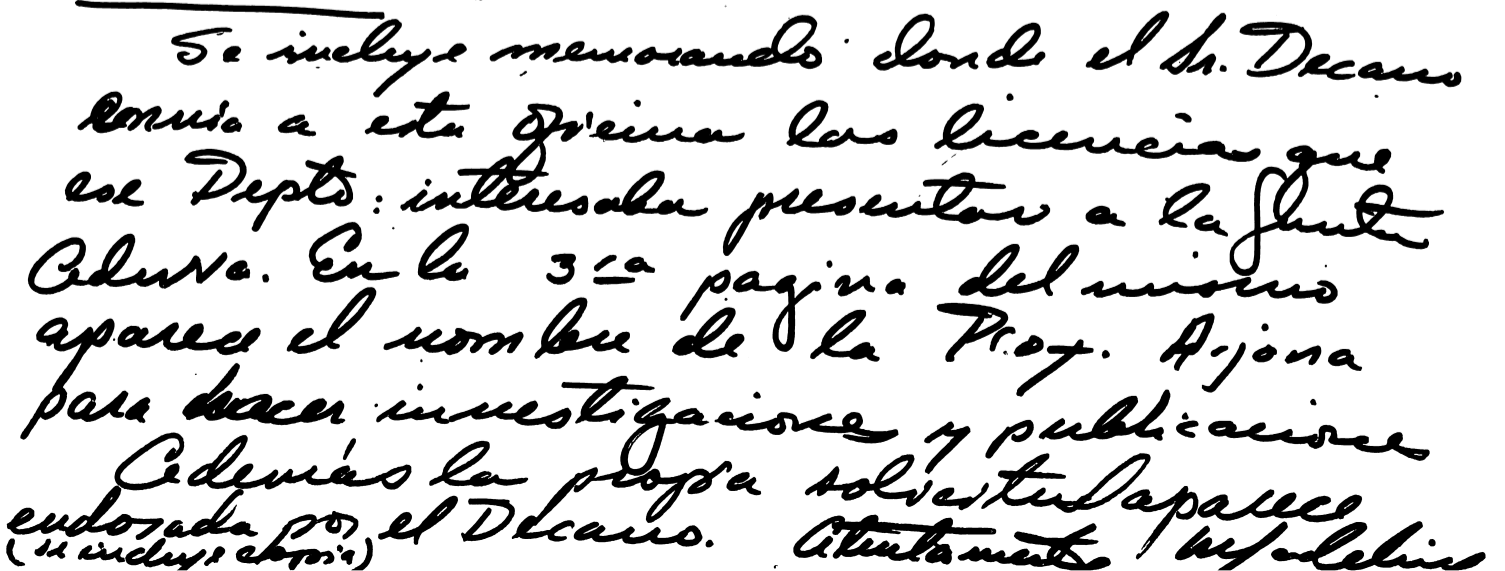 Se incluye memorando donde el Sr. Decano
envia a esta oficina las licencias que
ese Depto. interesaba presentar a la Junta
Adtiva. En la 3ra pagina del mismo
aparece el nombre de la Prof. Arjona
para hacer investigaciones y publicaciones
Además la propia solicitud aparece
endosada por el Decano. Atentamente
(se incluye copia)